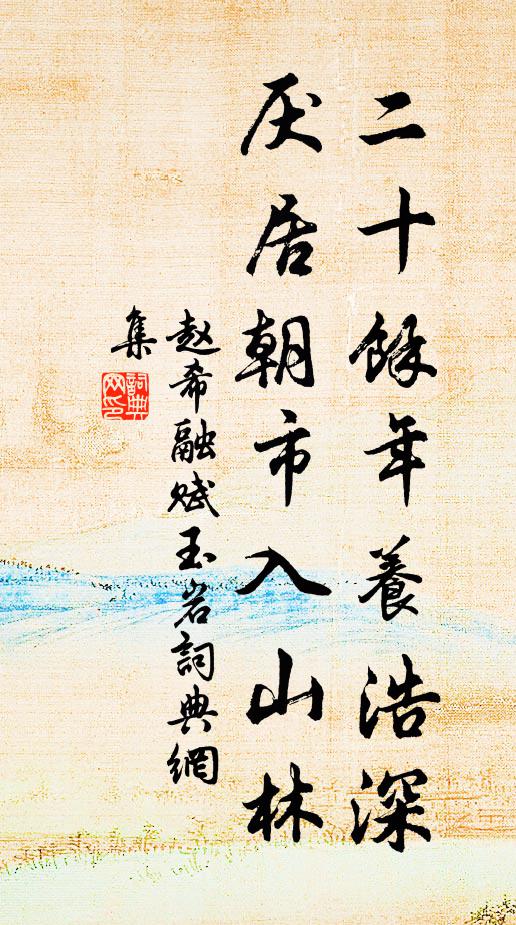 二十餘年養浩深
厌居朝市入山林
赵希融赋玉岩詞典網
集
詞典
网印